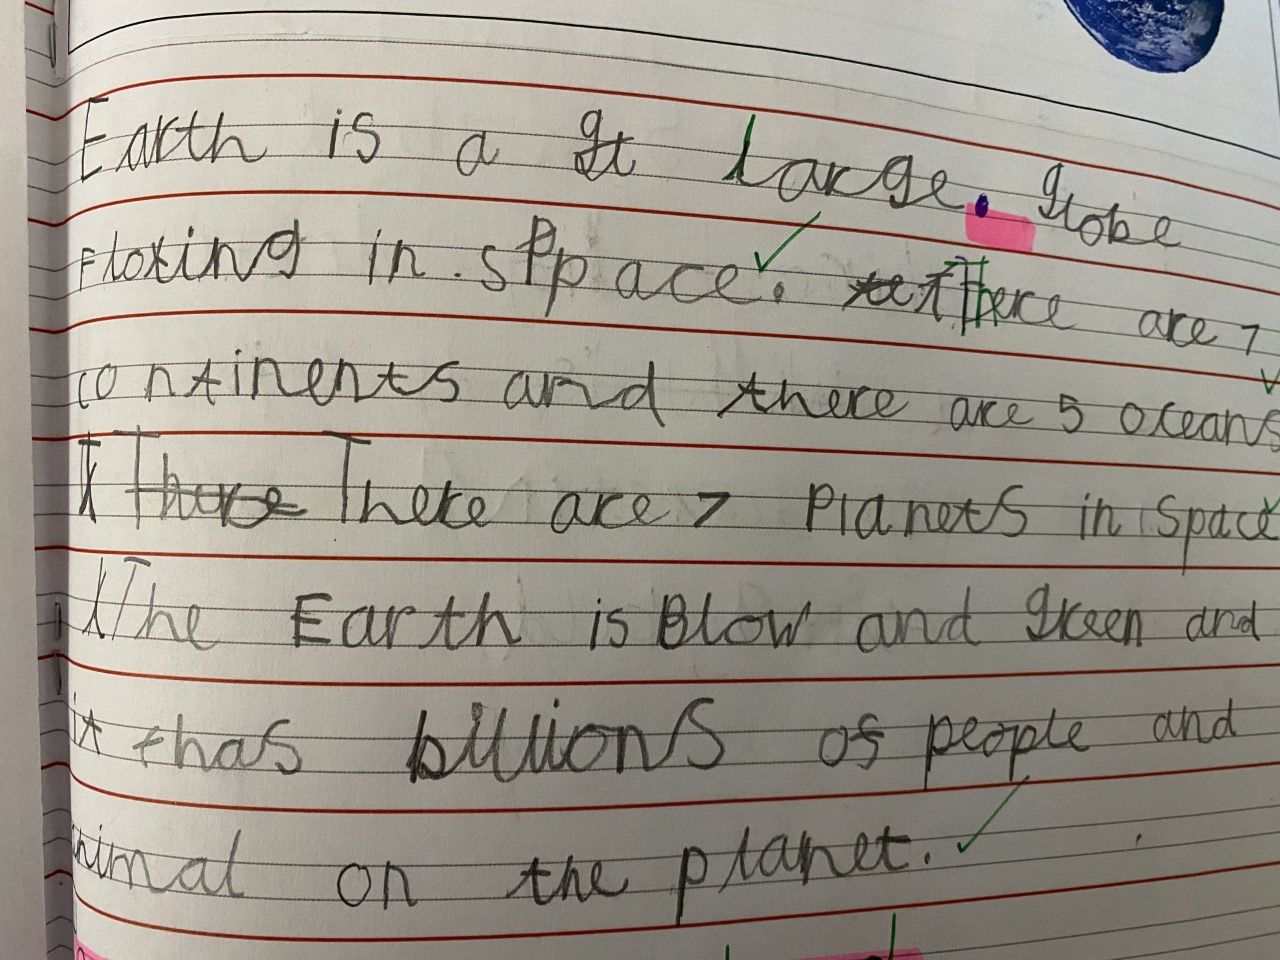 Earth is a gt large. globe
floting in space. There are 7
continents and there are 5 oceans
There There are 7 planets in space
The Earth is Blow and green and
it has billions of people and
nimal on the planet.